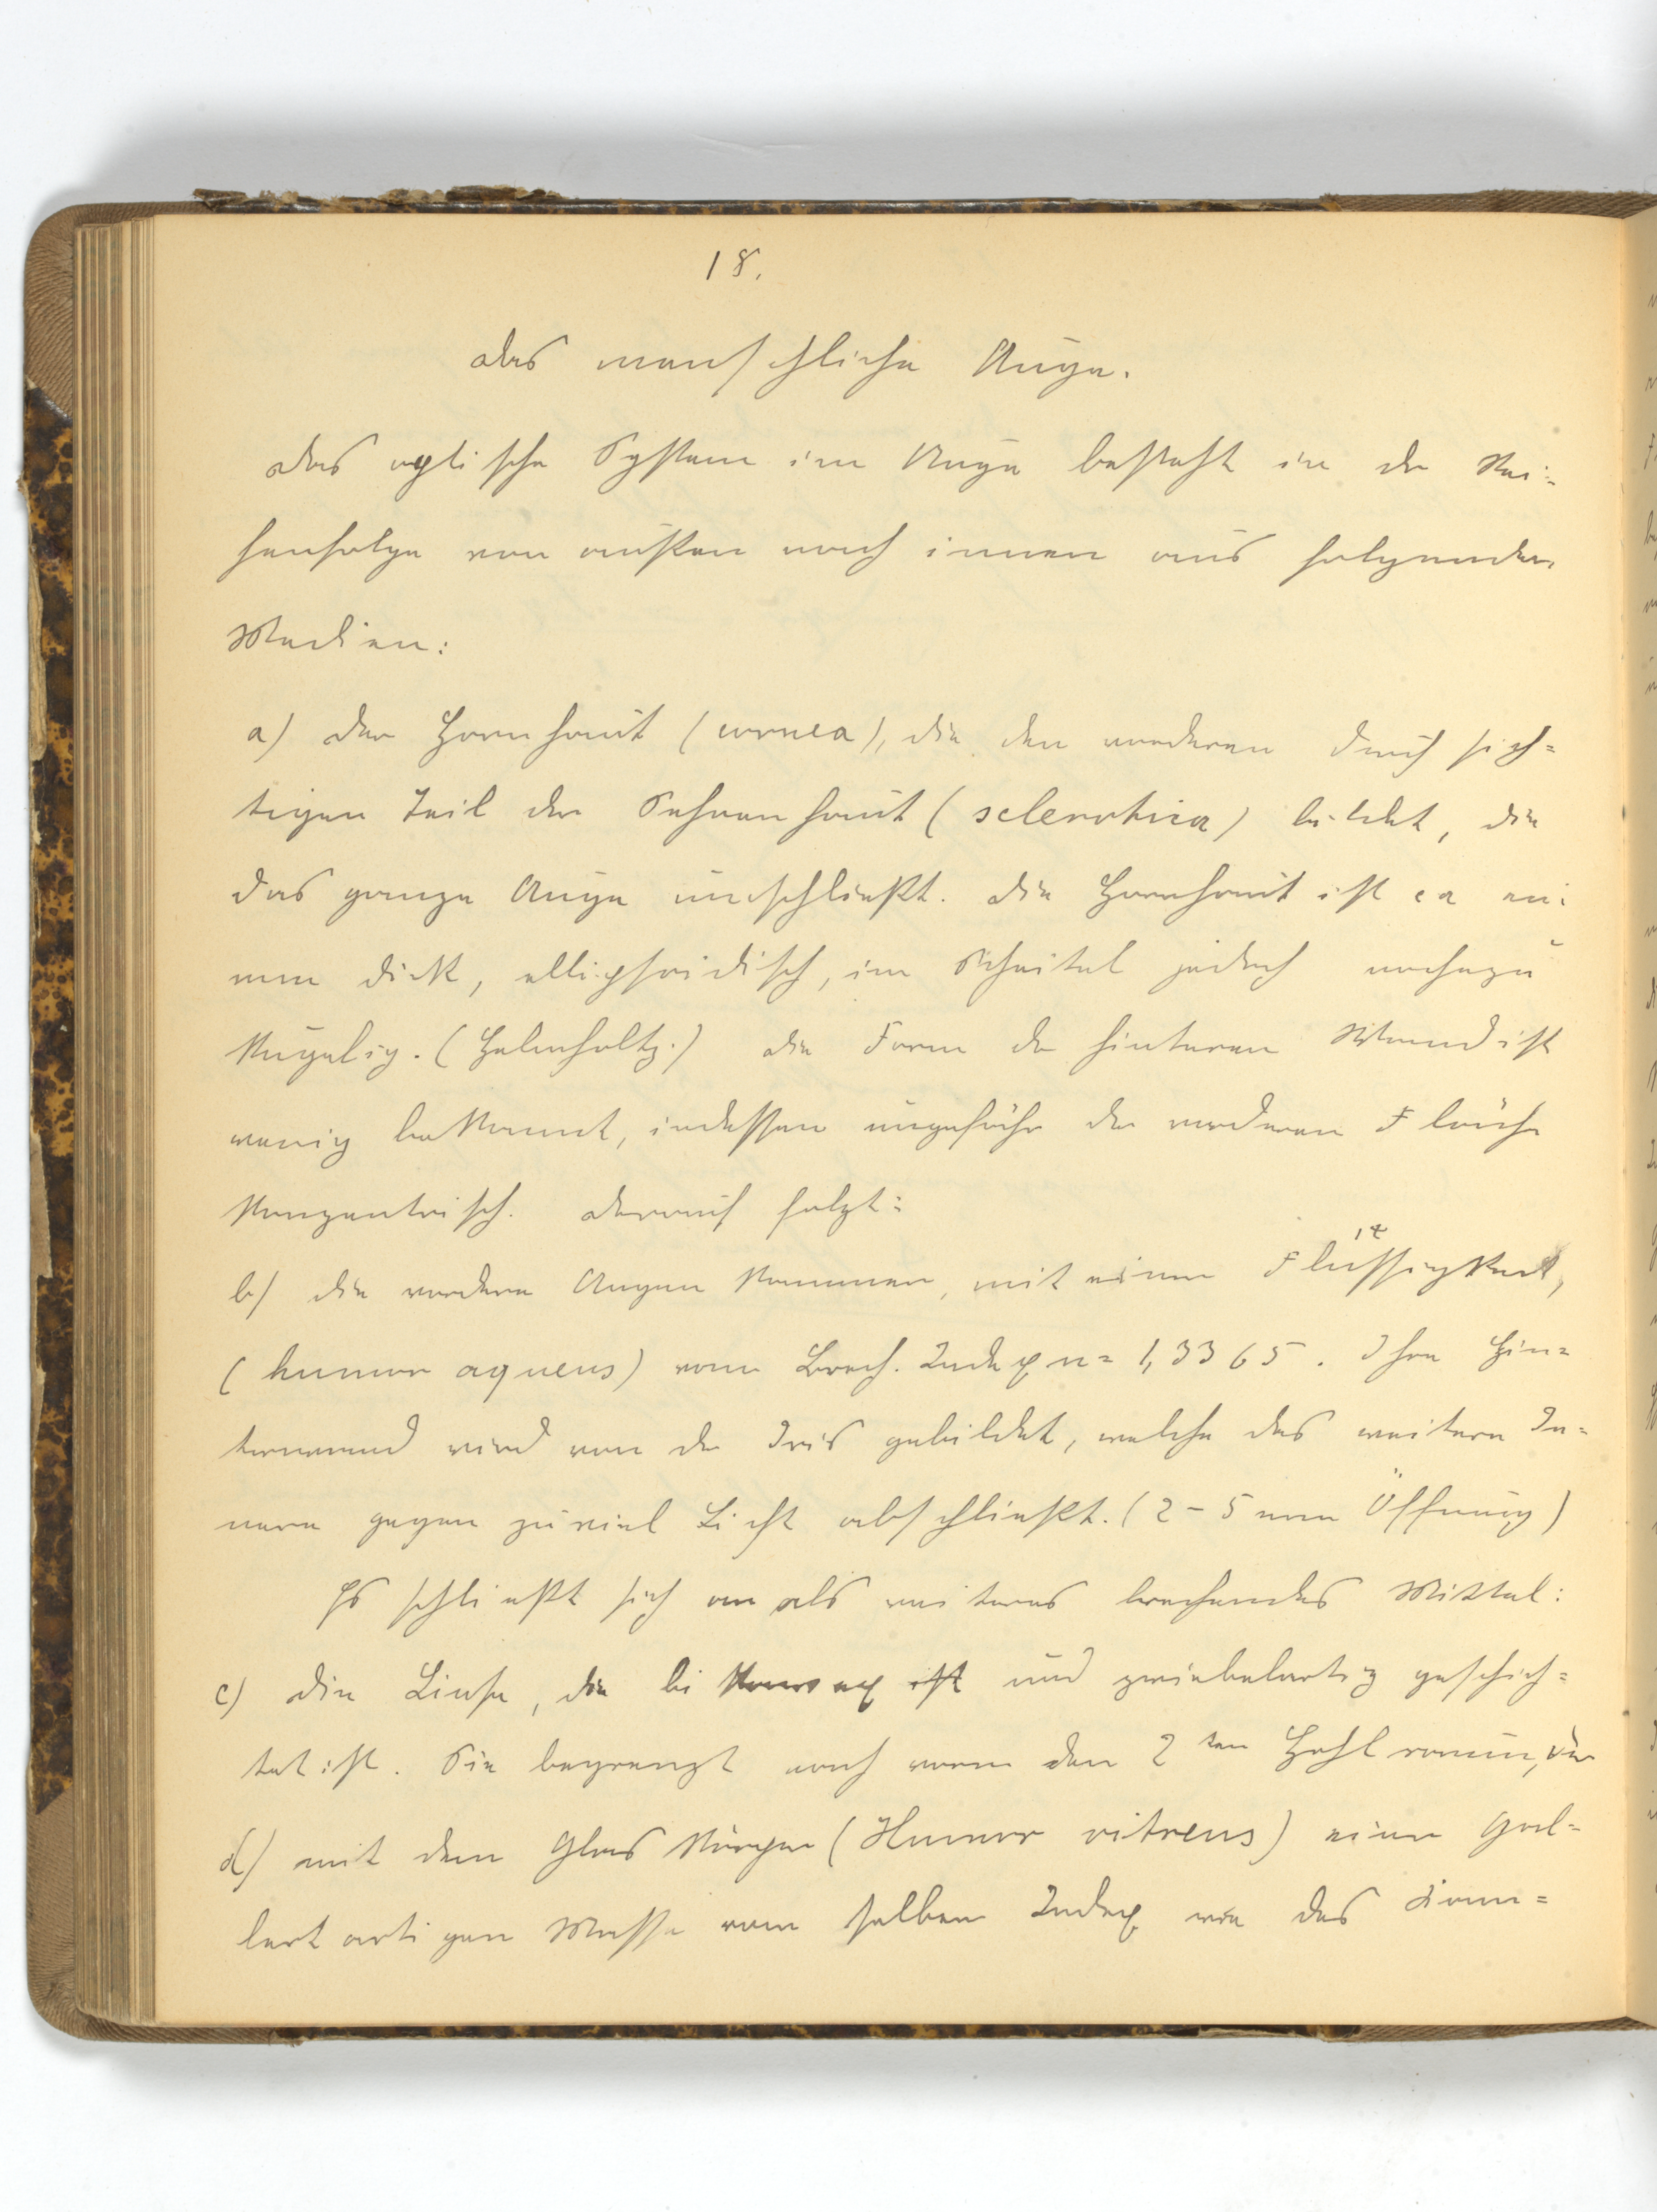 18.
Das menschliche Auge.
Das optische System im Auge besteht in der Rei-
henfolge von außen nach innen aus folgenden
Medien:
a) Der Hornhaut (cornea), die den vorderen durchsich=
tigen Teil der Sehnenhaut (sclerotica) bildet, die
das ganze Auge umschließt. Die Hornhaut ist ca ein
mm dick, ellipsoidisch, im Scheitel jedoch nahezu
kugelig. (Helmholtz.) Die Form der hinteren Wand ist
wenig bekannt, indessen ungefähr der vorderen Fläche
konzentrisch. Darauf folgt:
b) die vordere Augenkammer, mit einer Flüssigkeit,
(humor aqueus) vom Brech. Index n = 1,3365. Ihre Hin=
terwand wird von der Iris gebildet, welche das weitere In=
nere gegen zuviel Licht abschließt. (2-5 mm Öffnung)
Es schließt sich an als weiteres brechendes Mittel:
c) Die Linse, die bikonvex ist und zwiebelartig geschich=
tet ist. Sie begrenzt nach vorn den 2ten Hohlraum, der
d) mit dem Glaskörper (Humor vitreus) einer gal=
lertartigen Masse vom selben Index wie das Kam=